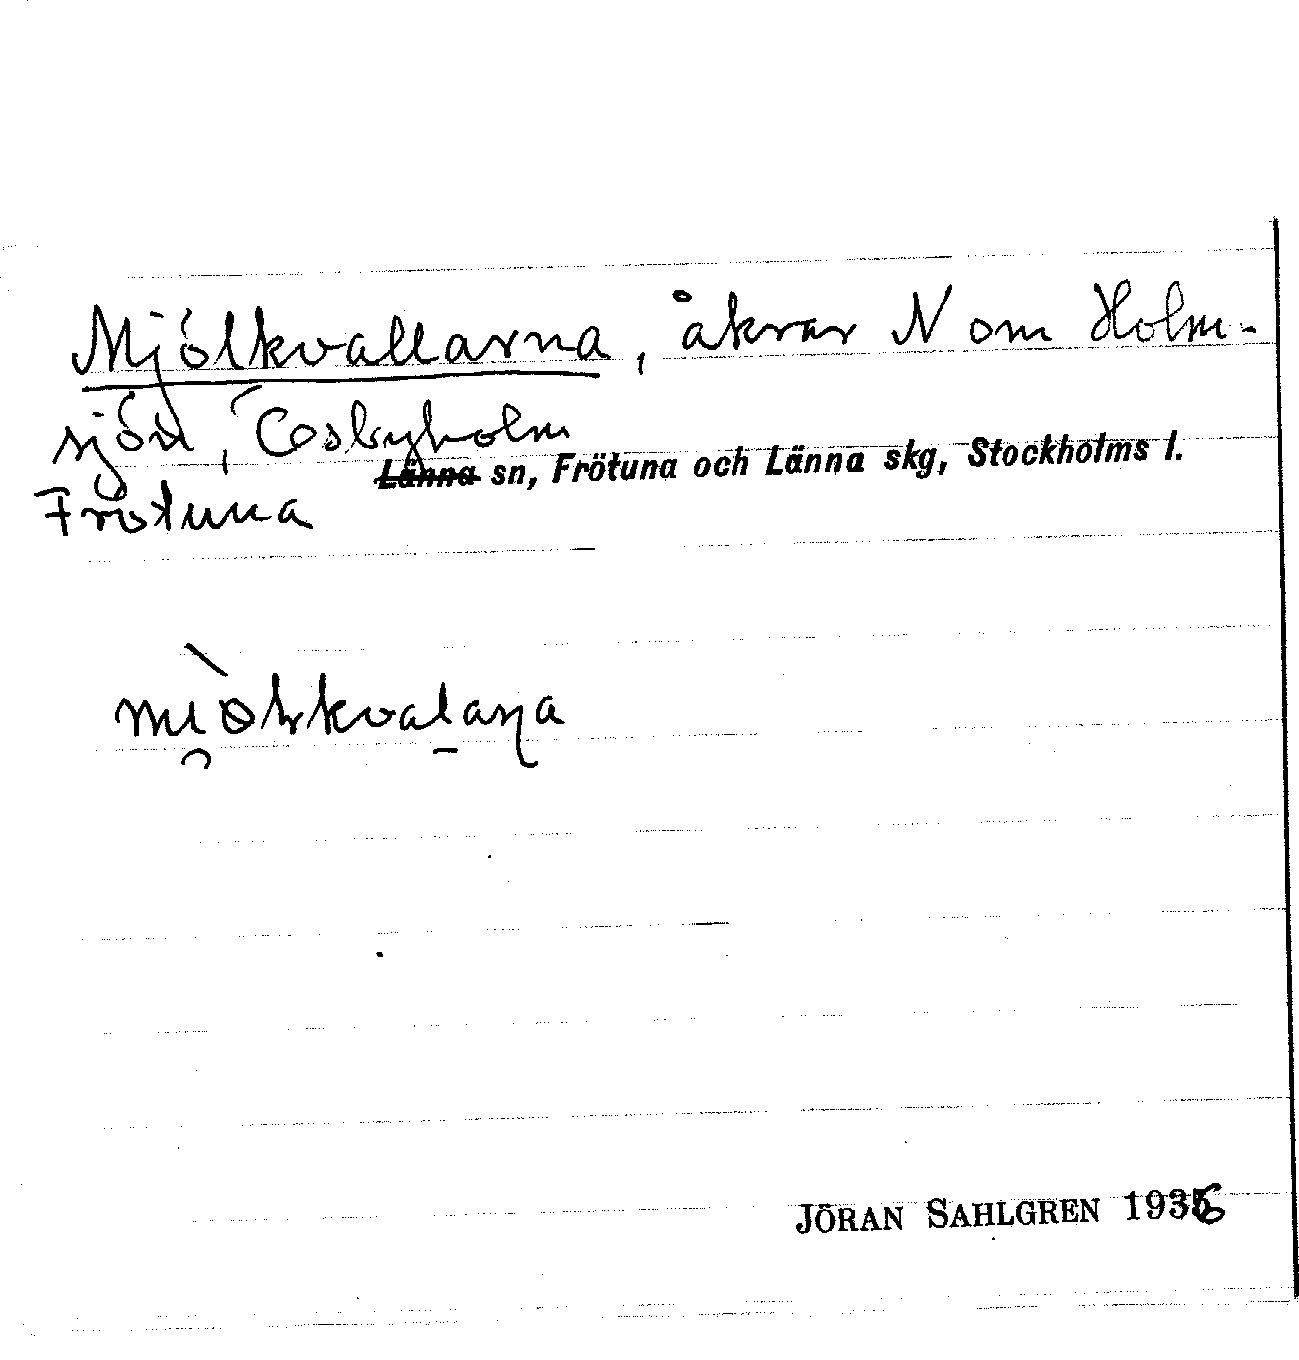 Mjölkvallarna, åkrar N om Holm-
sjön, Cosbyholm
Länna sn, Frötuna och Länna skg, Stockholms l.
Frötuna
JÖRAN SAHLGREN 1936